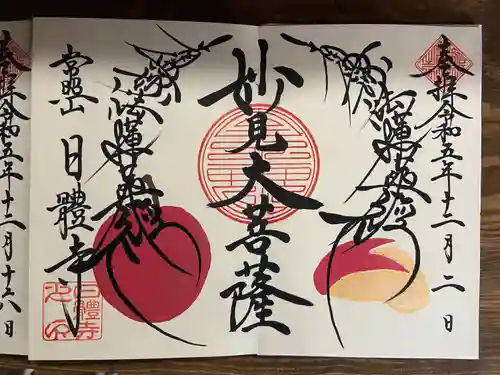 奉拝 令和五年十二月二日
南無妙法蓮華経
妙見大菩薩
南無妙法蓮華経
常照山 日體寺
奉拝 令和五年十二月十六日